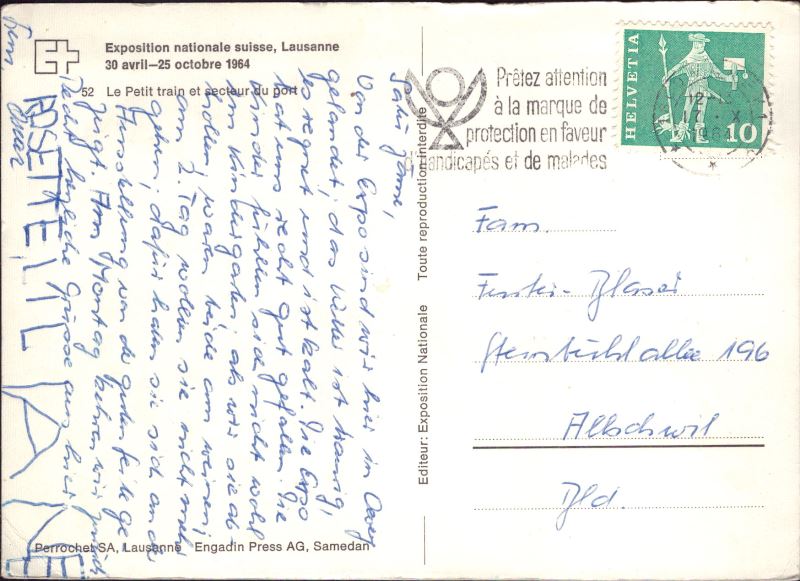 Exposition nationale suisse, Lausanne
30 avril—25 octobre 1964
52 Le Petit train et secteur du port
Prêtez attention
à la marque de
protection en faveur
d'handicapés et de malades
HELVETIA
10
12
Sehr geehrte,
Von der Expo sind wir hier in
gelandet; das Wetter ist traurig,
es regnet und ist kalt. Die Expo
hat uns recht gut gefallen. Die
Kinder fühlen sich nicht wohl
im Kindergarten, als wir sie ab-
holten, waren beide am weinen;
am 2. Tag wollten sie nicht mehr
gehen, dafür haben sie sich an der
Ausstellung von der guten Seite ge-
zeigt. Am Montag kehren wir zurück
Recht herzliche Grüsse aus hier
ROSETE
Fam.
Steinbühlallee 196
Allschwil
Bld.
Editeur: Exposition Nationale Toute reproduction interdite
Perrochet SA, Lausanne Engadin Press AG, Samedan